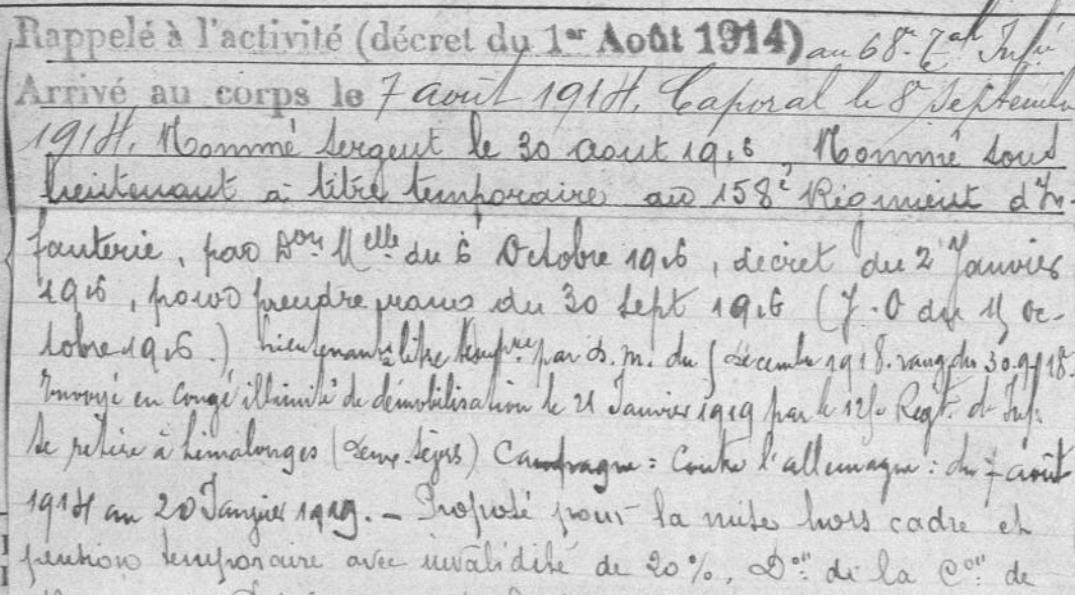 Rappelé à l'activité (décret du 1er Août 1914) au 68e Inf
Arrivé au corps le 7 août 1914, Caporal le 8 septembre
1914, Nommé sergent le 30 aout 1916 Nommé sous
lieutenant à titre temporaire au 158e Régiment d'In-
fanterie, par Don Melle du 6 Octobre 1916, décret du 2 Janvier
1916, pour prendre rang du 30 sept 1916 (J.O du 15 oc-
tobre 1916.) lieutenant à titre tempre par D.m. du 5 décembre 1918. rang du 30.9.18.
Envoyé en congé illimité de démobilisation le 21 Janvier 1919 par le 125e Regt. d'Inf.
Se retire à Limalonges (Deux-Sèvres) Campagne : Contre l'allemagne : du 7 août
1914 au 20 Janvier 1919. - Proposé pour la mise hors cadre et
pension temporaire avec invalidité de 20%, Don de la Con de